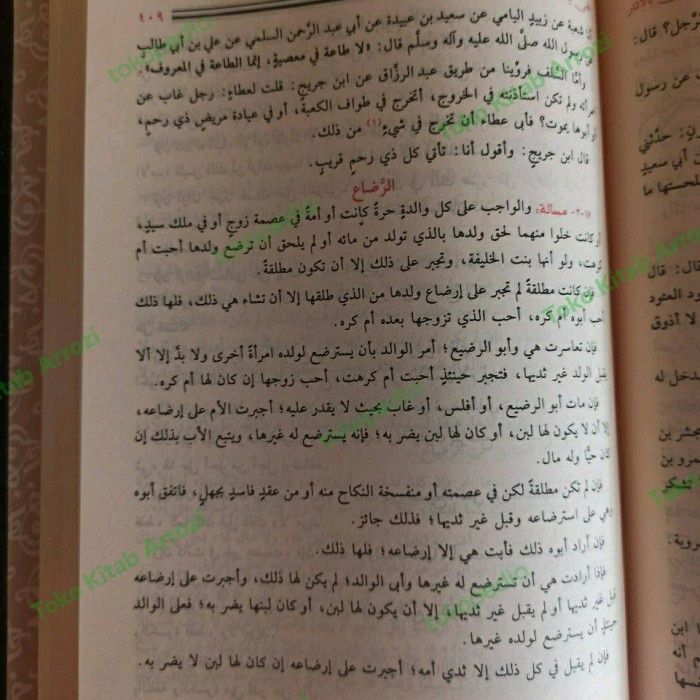 ٤٠٩
نا شعبة عن زبيدٍ اليامي عن سعيد بن عبيدة عن أبي عبد الرَّحمن السلمي عن علي بن أبي طالبٍ
رسول الله صلَّى الله عليه وآله وسلَّم قال: «لا طاعة في معصيةٍ، إنَّما الطاعة في المعروف».
وأمَّا السَّلف فروِّينا من طريق عبد الرزَّاق عن ابن جريجٍ: قلت لعطاءٍ: رجل غاب عن
امرأته ولم تكن استأذنته في الخروج، أتخرج في طواف الكعبة، أو في عيادة مريضٍ ذي رحمٍ،
أو أبوها يموت؟ فأبى عطاءٌ أن تخرج في شيءٍ (١) من ذلك.
قال ابن جريجٍ: وأقول أنا: تأتي كل ذي رحمٍ قريبٍ.
الرَّضاع
٢٠١٧- مسألة: والواجب على كل والدةٍ حرةً كانت أو أمةً في عصمة زوجٍ أو في ملك سيدٍ،
أو كانت خلوًا منهما لحق ولدها بالذي تولد من مائه أو لم يلحق أن ترضع ولدها أحبت أم
كرهت، ولو أنها بنت الخليفة، وتجبر على ذلك إلا أن تكون مطلقةً.
فإن كانت مطلقةً لم تجبر على إرضاع ولدها من الذي طلقها إلا أن تشاء هي ذلك، فلها ذلك
أحب أبوه أم كره، أحب الذي تزوجها بعده أم كره.
فإن تعاسرت هي وأبو الرضيع؛ أمر الوالد بأن يسترضع لولده امرأةً أخرى ولا بدَّ إلا ألا
يقبل الولد غير ثديها، فتجبر حينئذٍ أحبت أم كرهت، أحب زوجها إن كان لها أم كره.
فإن مات أبو الرضيع، أو أفلس، أو غاب بحيث لا يقدر عليه؛ أجبرت الأم على إرضاعه،
إلا أن لا يكون لها لبن، أو كان لها لبن يضر به؛ فإنه يسترضع له غيرها، ويتبع الأب بذلك إن
كان حيًّا وله مال.
فإن لم تكن مطلقةً لكن في عصمته أو منفسخة النكاح منه أو من عقدٍ فاسدٍ بجهلٍ، فاتفق أبوه
وهي على استرضاعه وقبل غير ثديها؛ فذلك جائز.
فإن أراد أبوه ذلك فأبت هي إلا إرضاعه؛ فلها ذلك.
فإذا أرادت هي أن تسترضع له غيرها وأبى الوالد؛ لم يكن لها ذلك، وأجبرت على إرضاعه
قبل غير ثديها أو لم يقبل غير ثديها، إلا أن يكون لها لبن، أو كان لبنها يضر به؛ فعلى الوالد
حينئذٍ أن يسترضع لولده غيرها.
فإن لم يقبل في كل ذلك إلا ثدي أمه؛ أجبرت على إرضاعه إن كان لها لبن لا يضر به.
الرجل؟ قال:
عن رسول
حدَّثني
أبي سعيدٍ
فلحستها ما
قال: قال
العنود
لا أذوق
Toko Kitab Arrozi
Toko Kitab Arrozi
Toko Kitab Arrozi